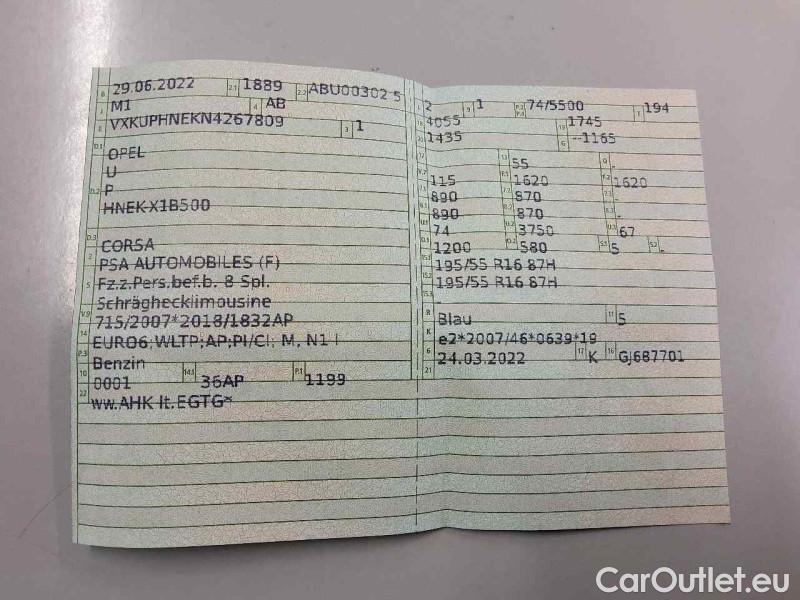 B 29.06.2022 2.1 1889 2.2 ABU00302 5
J M1 4 AB
E VXKUPHNEKN4267809 3 1
D.1 OPEL
U
D.2 P
HNEK-X1B500
D.3 CORSA
2 PSA AUTOMOBILES (F)
5 Fz.z.Pers.bef.b. 8 Spl.
Schräghecklimousine
V.9 715/2007*2018/1832AP
14 EURO6;WLTP;AP;PI/CI; M, N1 I
P.3 Benzin
10 0001 14.1 36AP P.1 1199
22 ww.AHK lt.EGTG*
L 2 9 1 P.2 P.4 74/5500 T 194
18 4055 19 1745
20 1435 G --1165
12 - 13 55 Q -
V.7 115 F.1 1620 F.2 1620
7.1 890 7.2 870 7.3 -
8.1 890 8.2 870 8.3 -
U.1 74 U.2 3750 U.3 67
O.1 1200 O.2 580 S.1 5 S.2 -
15.1 195/55 R16 87H
15.2 195/55 R16 87H
15.3 -
R Blau 11 5
K e2*2007/46*0639*19
6 24.03.2022 17 K 16 GJ687701
21
CarOutlet.eu